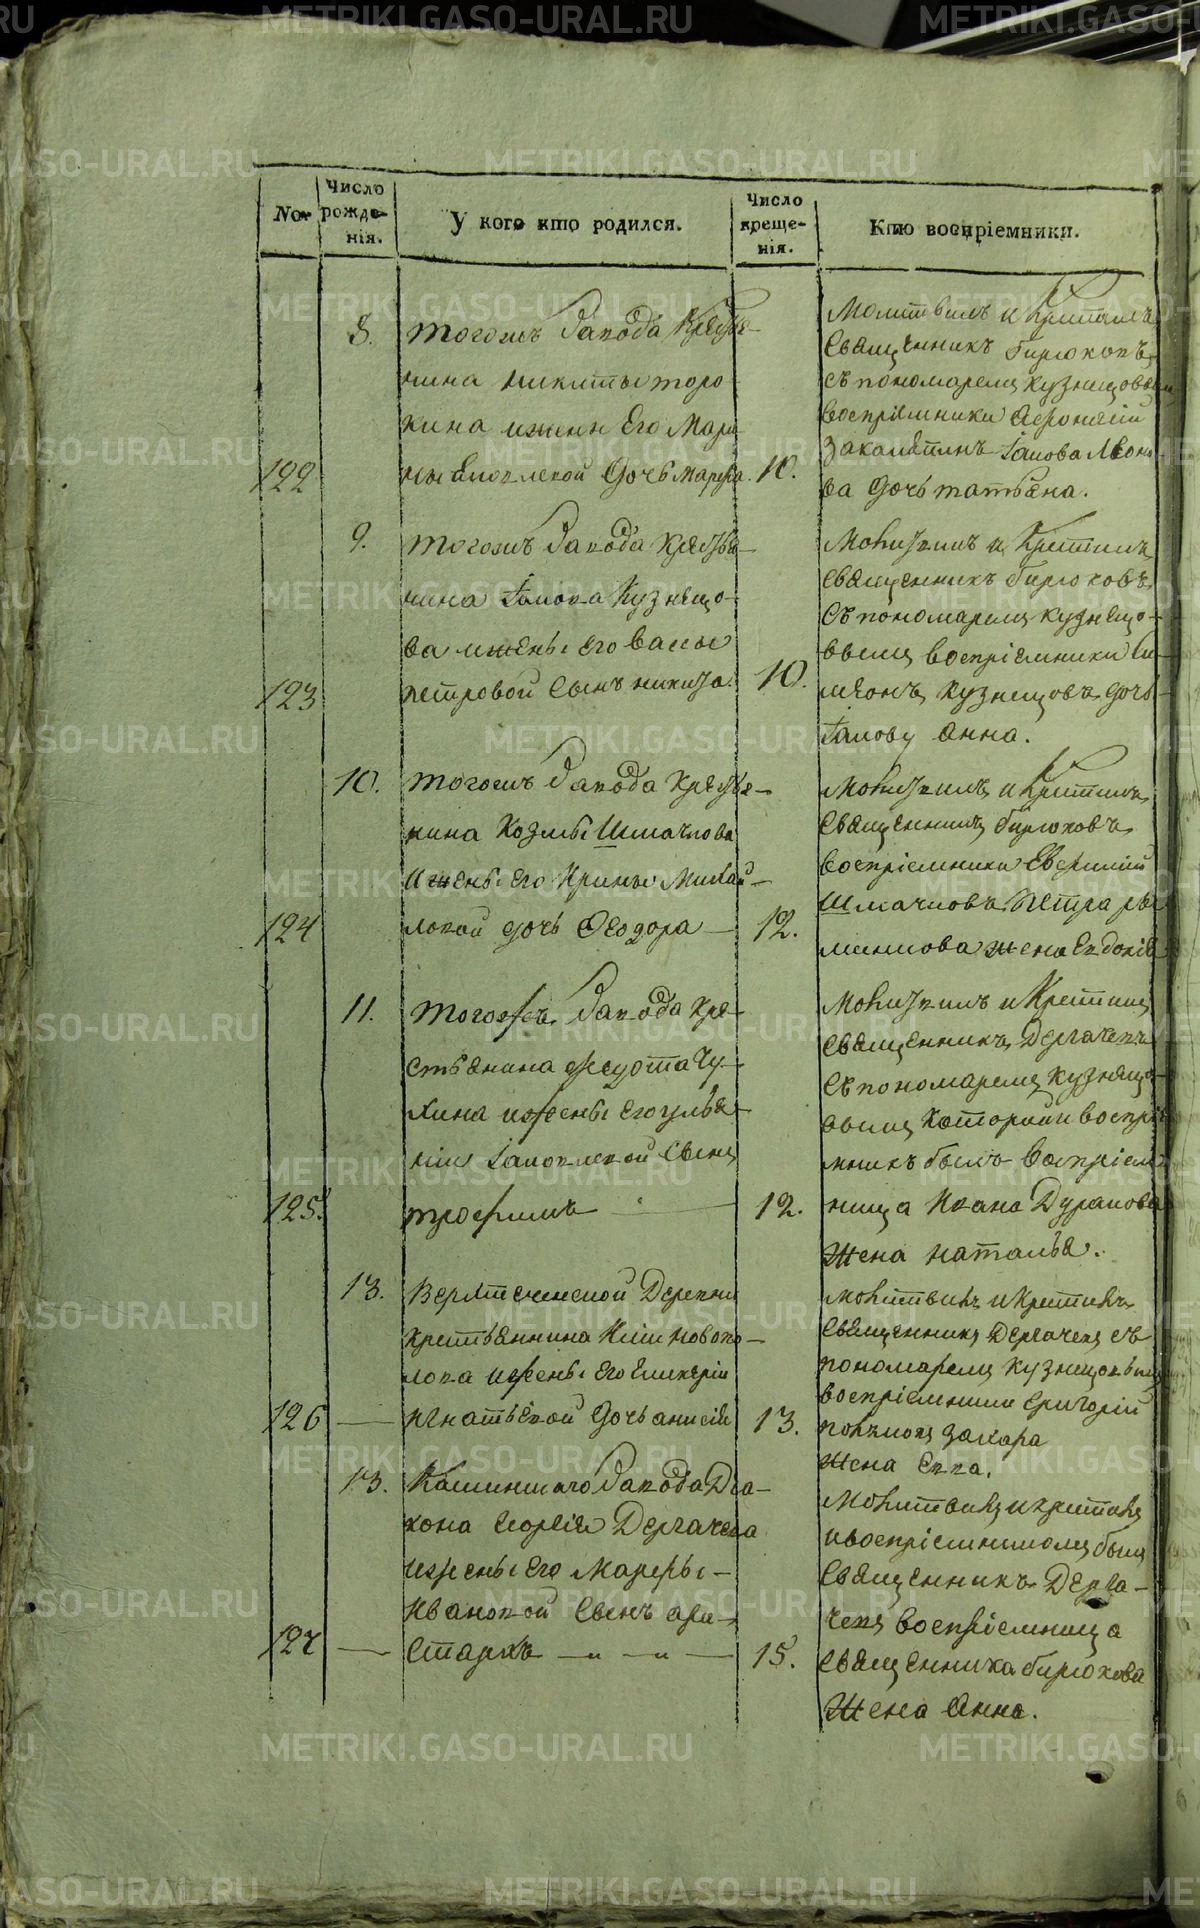 No.
Число рожде-
нія.
У кого кто родился.
Число
креще-
нія.
Кто воспріемники.
122
8.
тогожъ завода Крестья-
нина никиты торо
кина ижены Его Мари
ны дочь марфа.
10.
Молитвилъ и Крестилъ
Священникъ бирюковъ
съ пономаремъ кузнецовым
воспріемники Афонасій
ва дочь татьяна.
123
9.
тогожъ завода Крестья-
нина Іакова Кузнецо-
ва ижены его васы
петровой сынъ никита.
10.
Молитвилъ и Крестилъ
священникъ бирюковъ
съ пономаремъ кузнецо-
вымъ воспріемники Си
меонъ кузнецовъ дочь
Іакову Анна.
124
10.
тогожъ завода Кресья-
нина Козмы Шмачкова
ижены его Ирины Михай-
ловой дочь Феодора
12.
Молитвилъ и Крестилъ
Священникъ бирюковъ
воспріемники Евфимій
Шмачковъ Петра
жена Евдокія
125.
11.
тогожъ завода кре-
стьянина федота Чу-
хина ижены его улья-
ніи Іаковлевой сынъ
трофимъ
12.
Молитвилъ и Крестилъ
священникъ Дергачевъ
съ пономаремъ кузнецо-
вымъ который и воспріе
мникъ былъ воспріем
ница Ивана Дуракова
Жена Наталья.
126
13.
Деревни
крестьянина
лова ижены Его Гликеріи
игнатьевой дочь анисія
13.
молитвилъ и крестилъ
священникъ Дергачевъ съ
пономаремъ кузнецовымъ
воспріемники григорій
захара
Жена Евва.
127
13.
завода Діа-
кона георгія Дергачева
ижены Его Марфы
Ивановой сынъ ари-
стархъ — „ — „ —
15.
Молитвилъ и крестилъ
и воспріемникомъ былъ
священникъ Дерга-
чевъ воспріемница
священника бирюкова
Жена Анна.